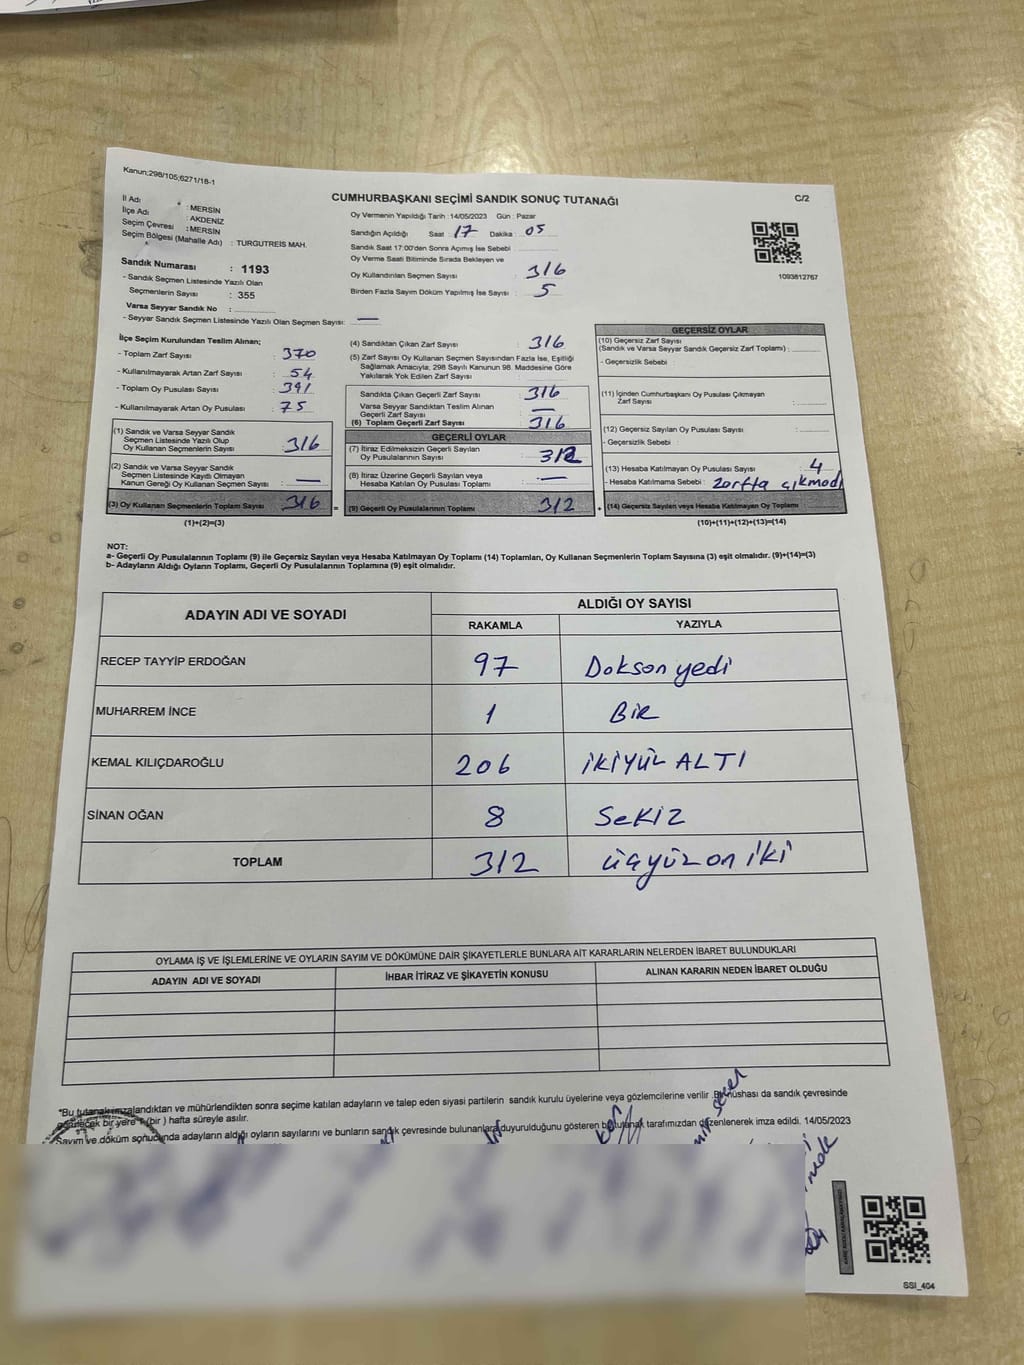 Kanun;298/105;6271/18-1
CUMHURBAŞKANI SEÇİMİ SANDIK SONUÇ TUTANAĞI
C/2
İl Adı : MERSİN
İlçe Adı : AKDENİZ
Seçim Çevresi : MERSİN
Seçim Bölgesi (Mahalle Adı) : TURGUTREİS MAH.
Sandık Numarası : 1193
- Sandık Seçmen Listesinde Yazılı Olan
Seçmenlerin Sayısı : 355
Varsa Seyyar Sandık No :
- Seyyar Sandık Seçmen Listesinde Yazılı Olan Seçmen Sayısı: —
Oy Vermenin Yapıldığı Tarih : 14/05/2023 Gün : Pazar
Sandığın Açıldığı Saat : 17 Dakika : 05
Sandık Saat 17:00'den Sonra Açımış İse Sebebi :
Oy Verme Saati Bitiminde Sırada Bekleyen ve
Oy Kullandırılan Seçmen Sayısı : 316
Birden Fazla Sayım Döküm Yapılmış İse Sayısı : 5
1093812767
İlçe Seçim Kurulundan Teslim Alınan;
- Toplam Zarf Sayısı : 370
- Kullanılmayarak Artan Zarf Sayısı : 54
- Toplam Oy Pusulası Sayısı : 391
- Kullanılmayarak Artan Oy Pusulası : 75
(1) Sandık ve Varsa Seyyar Sandık
Seçmen Listesinde Yazılı Olup
Oy Kullanan Seçmenlerin Sayısı : 316
(2) Sandık ve Varsa Seyyar Sandık
Seçmen Listesinde Kayıtlı Olmayan
Kanun Gereği Oy Kullanan Seçmen Sayısı : —
(3) Oy Kullanan Seçmenlerin Toplam Sayısı : 316
(1)+(2)=(3)
(4) Sandıktan Çıkan Zarf Sayısı : 316
(5) Zarf Sayısı Oy Kullanan Seçmen Sayısından Fazla İse, Eşitliği
Sağlamak Amacıyla; 298 Sayılı Kanunun 98. Maddesine Göre
Yakılarak Yok Edilen Zarf Sayısı :
Sandıkta Çıkan Geçerli Zarf Sayısı : 316
Varsa Seyyar Sandıktan Teslim Alınan
Geçerli Zarf Sayısı : —
(6) Toplam Geçerli Zarf Sayısı : 316
GEÇERLİ OYLAR
(7) İtiraz Edilmeksizin Geçerli Sayılan
Oy Pusulalarının Sayısı : 312
(8) İtiraz Üzerine Geçerli Sayılan veya
Hesaba Katılan Oy Pusulası Toplamı : —
= (9) Geçerli Oy Pusulalarının Toplamı : 312 +
GEÇERSİZ OYLAR
(10) Geçersiz Zarf Sayısı
(Sandık ve Varsa Seyyar Sandık Geçersiz Zarf Toplamı) :
- Geçersizlik Sebebi :
(11) İçinden Cumhurbaşkanı Oy Pusulası Çıkmayan
Zarf Sayısı :
(12) Geçersiz Sayılan Oy Pusulası Sayısı :
- Geçersizlik Sebebi :
(13) Hesaba Katılmayan Oy Pusulası Sayısı : 4
- Hesaba Katılmama Sebebi : zarfta çıkmadı
(14) Geçersiz Sayılan veya Hesaba Katılmayan Oy Toplamı :
(10)+(11)+(12)+(13)=(14)
NOT:
a- Geçerli Oy Pusulalarının Toplamı (9) ile Geçersiz Sayılan veya Hesaba Katılmayan Oy Toplamı (14) Toplamları, Oy Kullanan Seçmenlerin Toplam Sayısına (3) eşit olmalıdır. (9)+(14)=(3)
b- Adayların Aldığı Oyların Toplamı, Geçerli Oy Pusulalarının Toplamına (9) eşit olmalıdır.
ADAYIN ADI VE SOYADI
ALDIĞI OY SAYISI
RAKAMLA YAZIYLA
RECEP TAYYİP ERDOĞAN 97 Doksan yedi
MUHARREM İNCE 1 BİR
KEMAL KILIÇDAROĞLU 206 İKİYÜZ ALTI
SİNAN OĞAN 8 SEKİZ
TOPLAM 312 üçyüz on iki
OYLAMA İŞ VE İŞLEMLERİNE VE OYLARIN SAYIM VE DÖKÜMÜNE DAİR ŞİKAYETLERLE BUNLARA AİT KARARLARIN NELERDEN İBARET BULUNDUKLARI
ADAYIN ADI VE SOYADI İHBAR İTİRAZ VE ŞİKAYETİN KONUSU ALINAN KARARIN NEDEN İBARET OLDUĞU
*Bu tutanak imzalandıktan ve mühürlendikten sonra seçime katılan adayların ve talep eden siyasi partilerin sandık kurulu üyelerine veya gözlemcilerine verilir. Bir nüshası da sandık çevresinde
görülecek bir yere 1 (bir) hafta süreyle asılır.
Sayım ve döküm sonucunda adayların aldığı oyların sayılarını ve bunların sandık çevresinde bulunanlara duyurulduğunu gösteren bu tutanak tarafımızdan düzenlenerek imza edildi. 14/05/2023
SSI_404